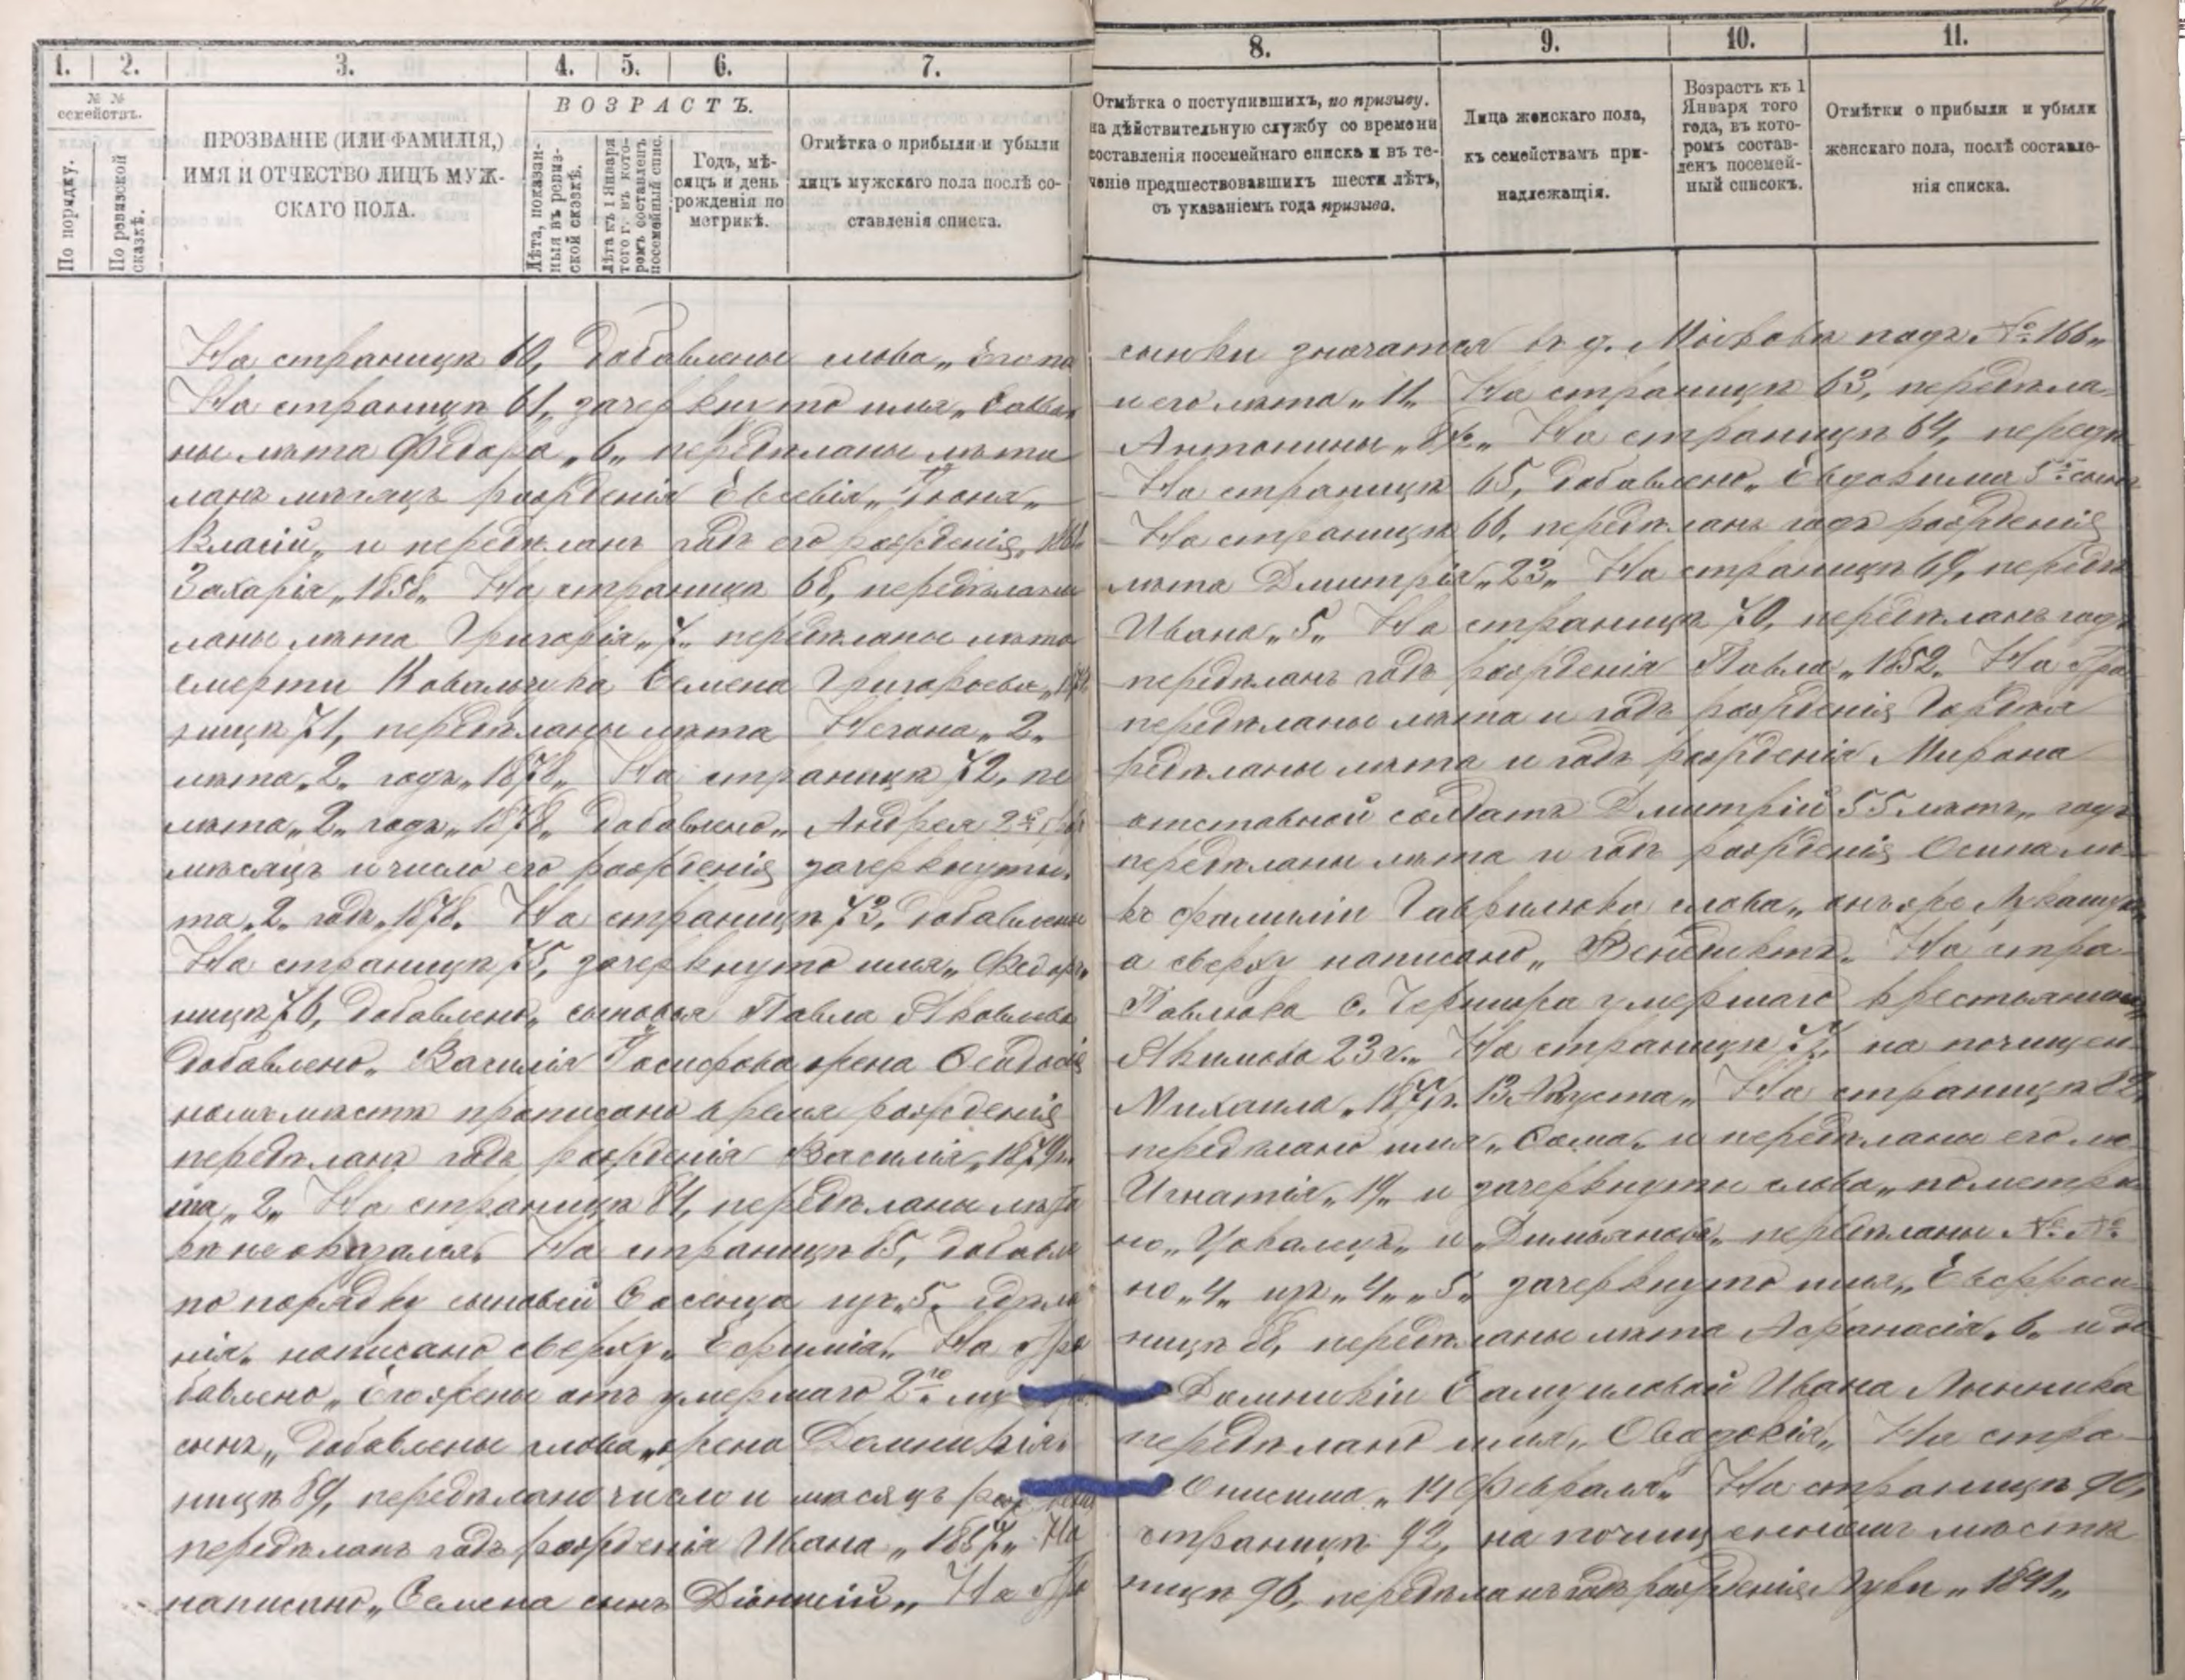 1. 2. 3. 4. 5. 6. 7. 8. 9. 10. 11.
№ № семействъ.
По порядку.
По ревизской сказкѣ.
ПРОЗВАНІЕ (ИЛИ ФАМИЛІЯ,)
ИМЯ И ОТЧЕСТВО ЛИЦЪ МУЖ-
СКАГО ПОЛА.
ВОЗРАСТЪ.
Лѣта, показан-
ныя въ ревиз-
ской сказкѣ.
Лѣта къ 1 Января
того г. въ кото-
ромъ составленъ
посемейный спис.
Годъ, мѣ-
сяцъ и день
рожденія по
метрикѣ.
Отмѣтка о прибыли и убыли
лицъ мужскаго пола послѣ со-
ставленія списка.
Отмѣтка о поступившихъ, по призыву.
на дѣйствительную службу со времени
составленія посемейнаго списка и въ те-
ченіе предшествовавшихъ шести лѣтъ,
съ указаніемъ года призыва.
Лица женскаго пола,
къ семействамъ при-
надлежащія.
Возрастъ къ 1
Января того
года, въ кото-
ромъ состав-
ленъ посемей-
ный списокъ.
Отмѣтки о прибыли и убыли
женскаго пола, послѣ составле-
нія списка.
На страницѣ 60, добавлены слова „Его па сынки значатся въ д. подъ № 166„
На страницѣ 61, зачеркнуто имя „Савва„ и его лѣта „11„ На страницѣ 63, передѣла-
ны лѣта Федора „6„ передѣланы лѣта Антонины На страницѣ 64, передѣ
ланъ мѣсяцъ рожденія Евсевія „Іюня„ На страницѣ 65, добавлено „Евдокима 5й сынъ
Власій„ и передѣланъ годъ его рожденія На страницѣ 66, передѣланъ годъ рожденія
Захарія „1858„ На страницѣ 68, передѣланы лѣта Дмитрія „23„ На страницѣ 69, передѣ
ланы лѣта Григорія „7„ передѣланы лѣта Ивана „5„ На страницѣ 70, передѣланъ годъ
смерти Ковальчука Семена Григорьева передѣланъ годъ рожденія Павла „1852„ На стра
ницѣ 71, передѣланы лѣта „2„ передѣланы лѣта и годъ рожденія Гордѣя
лѣта „2„ годъ „1878„ На страницѣ 72, пе редѣланы лѣта и годъ рожденія Мирона
лѣта „2„ годъ „1878„ добавлено „Андрея 2й отставной солдатъ Дмитрій 55 лѣтъ„ годъ
мѣсяцъ и число его рожденія зачеркнуты, передѣланы лѣта и годъ рожденія Осипа лѣ-
та „2„ годъ „1878„ На страницѣ 73, добавлены къ фамиліи Гаврилюка слова „онъ же
На страницѣ 75, зачеркнуто имя „Федоръ„ а сверху написано „Венедиктъ„ На стра-
ницѣ 76, добавлено „сыновья Павла Яковлева Павлюка с. умершаго крестьянина„
добавлено „Василія Іосифова жена Ѳеодосія Якимова 23 г.„ На страницѣ 77, на почищен-
номъ мѣстѣ прописано время рожденія Михаила 13 Августа„ На страницѣ 82,
передѣланъ годъ рожденія Василія „1879„ передѣлано имя и передѣланы его лѣ-
та „2„ На страницѣ 84, передѣланы лѣта Игнатія „19„ и зачеркнуты слова „по метри
кѣ не оказался„ На страницѣ 85, добавле но и „Димьянова„ передѣланы № №
по порядку сыновей изъ „5„ сдѣла но „4„ изъ „4„ „5„ зачеркнуто имя „Евфроси-
нія„ написано сверху „Ефимія„ На стра ницѣ 88, передѣланы лѣта Афанасія „6„ и до
бавлено „Его жены отъ умершаго 2го му Домникіи Самуиловой Ивана
сынъ„ добавлены слова „жена Домникія„ передѣлано имя „Овадокія„ На стра-
ницѣ 89, передѣлано число и мѣсяцъ рожденія Онисима „14 Февраля„ На страницѣ 90,
передѣланъ годъ рожденія Ивана „1867„ На страницѣ 92, на почищенномъ мѣстѣ
написано „Семена сынъ Діонисій„ На стра ницѣ 96, передѣланъ годъ рожденія „1841„